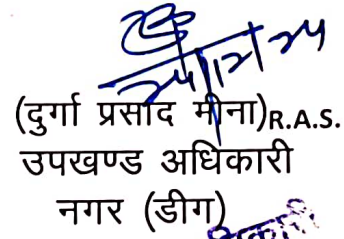 24/12/24
(दुर्गा प्रसाद मीना)R.A.S.
उपखण्ड अधिकारी
नगर (डीग)